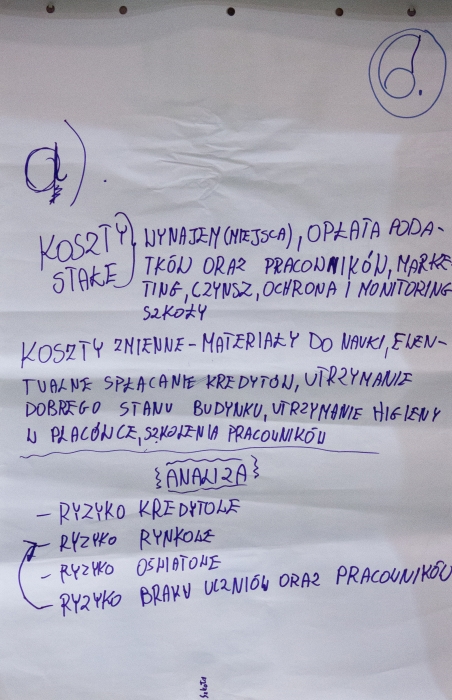 d.
a)
KOSZTY STAŁE } WYNAJEM (MIEJSCA), OPŁATA PODA-
TKÓW ORAZ PRACOWNIKÓW, MARKE-
TING, CZYNSZ, OCHRONA I MONITORING
SZKOŁY
KOSZTY ZMIENNE - MATERIAŁY DO NAUKI, EWEN-
TUALNE SPŁACANIE KREDYTÓW, UTRZYMANIE
DOBREGO STANU BUDYNKU, UTRZYMANIE HIGIENY
W PLACÓWCE, SZKOLENIA PRACOWNIKÓW
{ANALIZA}
- RYZYKO KREDYTOWE
- RYZYKO RYNKOWE
- RYZYKO OŚWIATOWE
- RYZYKO BRAKU UCZNIÓW ORAZ PRACOWNIKÓW
Szkoła